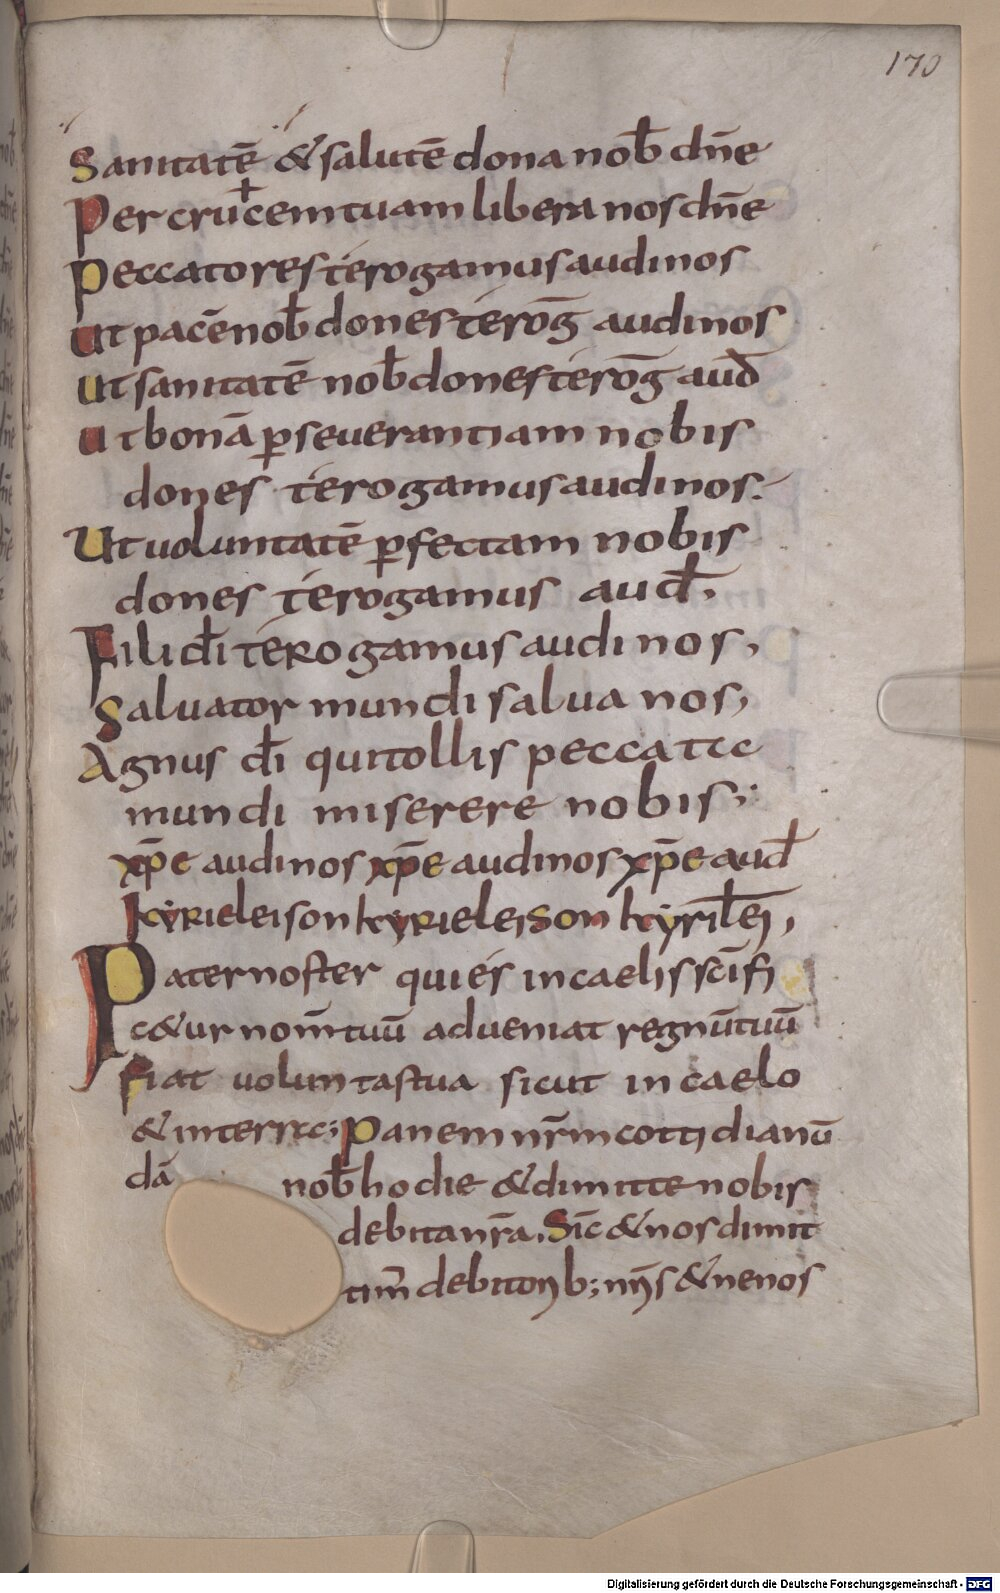 170
Sanitatē & salutē dona nob̄ dn̄e
Per crucem tuam libera nos dn̄e
Peccatores te rogamus audi nos
Ut pacē nob̄ dones te roḡ audi nos
Ut sanitatē nob̄ dones te roḡ aud̄
Ut bonā ꝑseverantiam nobis
dones te rogamus audi nos.
Ut voluntatē ꝑfectam nobis
dones te rogamus aud̄.
Fili dī te rogamus audi nos,
Salvator mundi salva nos,
Agnus dī qui tollis peccata
mundi miserere nobis;
xp̄e audi nos xp̄e audi nos xp̄e aud̄
Kyrieleison kyrieleison kyril̄ei,
Pater noster qui es in caelis sc̄ifi
c&ur nom̄ tuū adveniat regnū tuū
fiat voluntas tua sicut in caelo
& in terra; Panem nr̄m cottidianū
dā nob̄ hodie & dimitte nobis
debita nr̄a. Sic̄ & nos dimit
tim̄ debitorib; nr̄is & ne nos
Digitalisierung gefördert durch die Deutsche Forschungsgemeinschaft - DFG